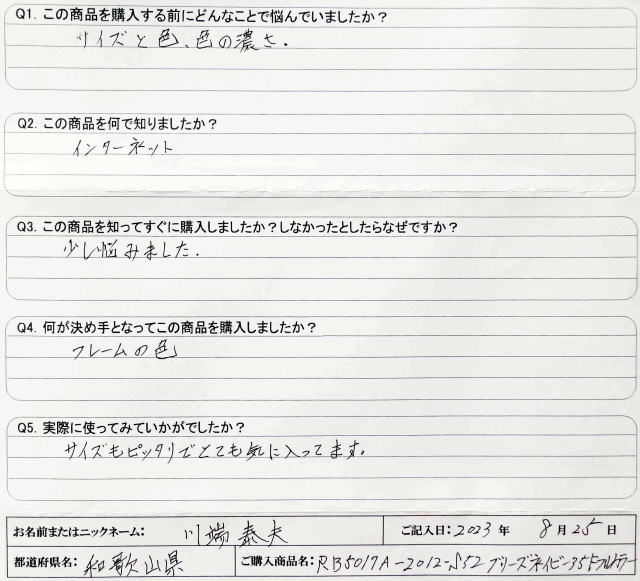 Q1. この商品を購入する前にどんなことで悩んでいましたか？
サイズと色、色の濃さ.
Q2. この商品を何で知りましたか？
インターネット
Q3. この商品を知ってすぐに購入しましたか？しなかったとしたらなぜですか？
少し悩みました.
Q4. 何が決め手となってこの商品を購入しましたか？
フレームの色
Q5. 実際に使ってみていかがでしたか？
サイズもピッタリでとても気に入ってます.
お名前またはニックネーム： 川端泰夫 ご記入日：2023年 8月25日
都道府県名：和歌山県 ご購入商品名：RB5017A-2012-S52 フリーズネイビー35F